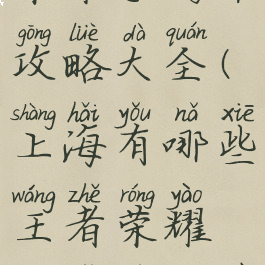 gōng lüè dà quán
攻略大全(
shàng hǎi yǒu nǎ xiē
上海有哪些
wáng zhě róng yào
王者荣耀